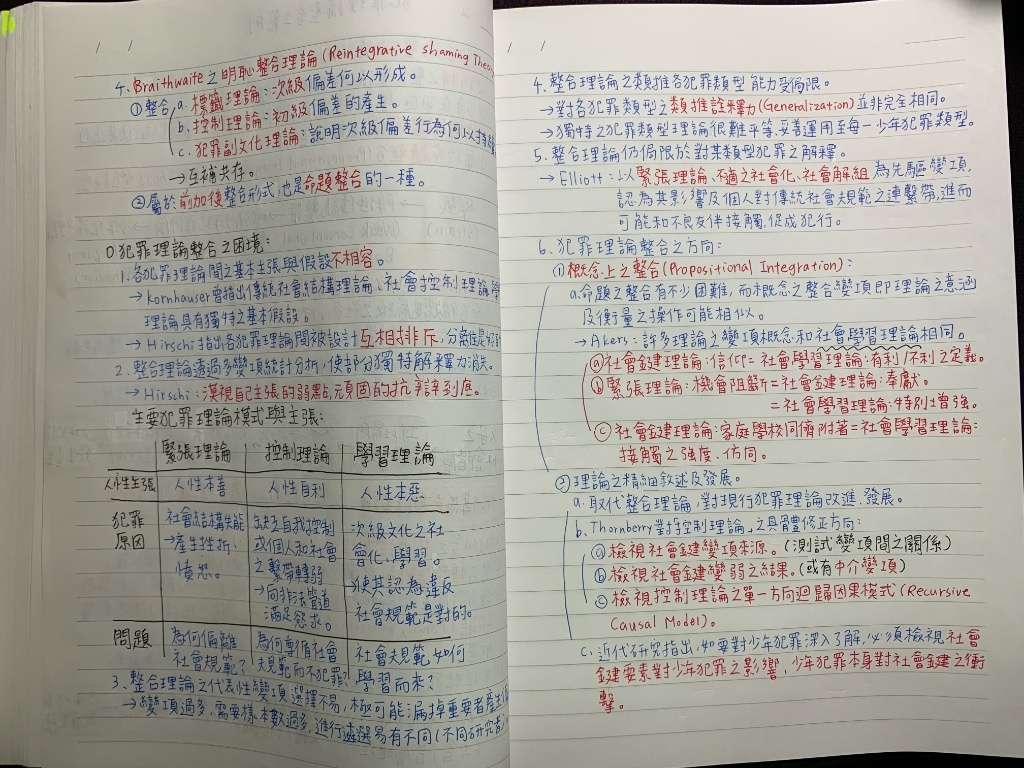 4. Braithwaite之明恥整合理論(Reintegrative shaming Theo
①整合 a. 標籤理論：次級偏差何以形成。
b. 控制理論：初級偏差的產生。
c. 犯罪副文化理論：說明次級偏差行為何以持
→互補共存。
②屬於前加後整合形式，也是命題整合的一種。
犯罪理論整合之困境：
1. 各犯罪理論間之基本主張與假設不相容。
→Kornhauser曾指出傳統社會結構理論、社會控制理論
理論具有獨特之基本假設。
→Hirschi指出各犯罪理論間被設計互相排斥，分離性是
2. 整合理論透過多變項統計分析，使部分獨特解釋力消失。
→Hirschi：漠視自己主張的弱點，頑固的抗爭到底。
主要犯罪理論模式與主張：
緊張理論 控制理論 學習理論
人性主張 人性本善 人性自利 人性本惡
犯罪原因 社會結構失能→產生挫折、憤怒。 缺乏自我控制或個人和社會之繫帶轉弱→向非法管道滿足慾求。 次級文化之社會化、學習。→使其認為違反社會規範是對的。
問題 為何偏離社會規範？ 為何遵循社會規範而不犯罪？ 社會規範如何學習而來？
3. 整合理論之代表性變項選擇不易，極可能漏掉重要者產生
→變項過多，需要樣本數過多，進行遴選易有不同(不同研究者)
4. 整合理論之類推各犯罪類型能力受侷限。
→對各犯罪類型之類推詮釋力(Generalization)並非完全相同。
→獨特之犯罪類型理論很難平等、妥善運用至每一少年犯罪類型。
5. 整合理論仍侷限於對某類型犯罪之解釋。
→Elliott：以緊張理論、不適之社會化、社會解組為先驅變項，
認為其影響及個人對傳統社會規範之連繫帶，進而
可能和不良友伴接觸，促成犯行。
6. 犯罪理論整合之方向：
①概念上之整合(Propositional Integration)：
a. 命題之整合有不少困難，而概念之整合變項即理論之意涵
及衡量之操作可能相似。
→Akers：許多理論之變項概念和社會學習理論相同。
ⓐ社會鍵理論：信仰＝社會學習理論：有利/不利之定義。
ⓑ緊張理論：機會阻斷＝社會鍵理論：奉獻。
＝社會學習理論：特別增強。
ⓒ社會鍵理論：家庭學校同儕附著＝社會學習理論：
接觸之強度、仿同。
②理論之精細敘述及發展。
a. 取代整合理論，對現行犯罪理論改進、發展。
b. Thornberry對控制理論之具體修正方向：
ⓐ檢視社會鍵變項來源。(測試變項間之關係)
ⓑ檢視社會鍵變弱之結果。(或有中介變項)
ⓒ檢視控制理論之單一方向迴歸因果模式(Recursive
Causal Model)。
c. 近代研究指出，如要對少年犯罪深入了解，必須檢視社會
鍵要素對少年犯罪之影響，少年犯罪本身對社會鍵之衝
擊。